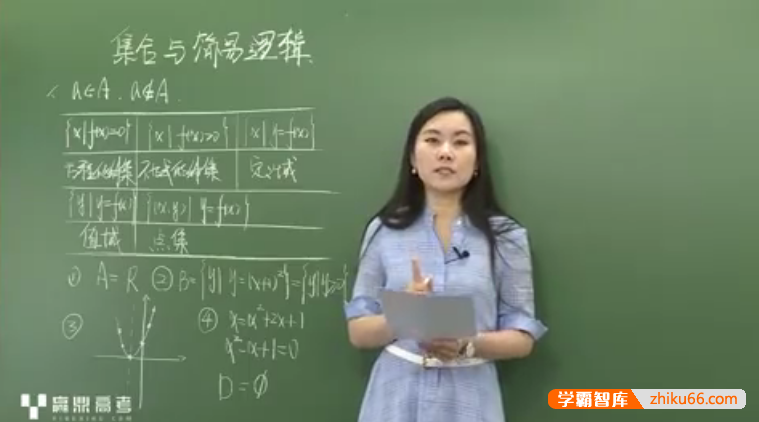 集合与简易逻辑
a∈A、a∉A
{x|f(x)=0} {x|f(x)>0} {x|y=f(x)}
方程的解集 不等式的解集 定义域
{y|y=f(x)} {(x,y)|y=f(x)}
值域 点集
① A=R ② B={y|y=(x+1)²}={y|y≥0}
③ ④ x=x²+2x+1
x²+x+1=0
D=∅
赢鼎高考
YINGDING.COM
学霸智库 zhiku66.com